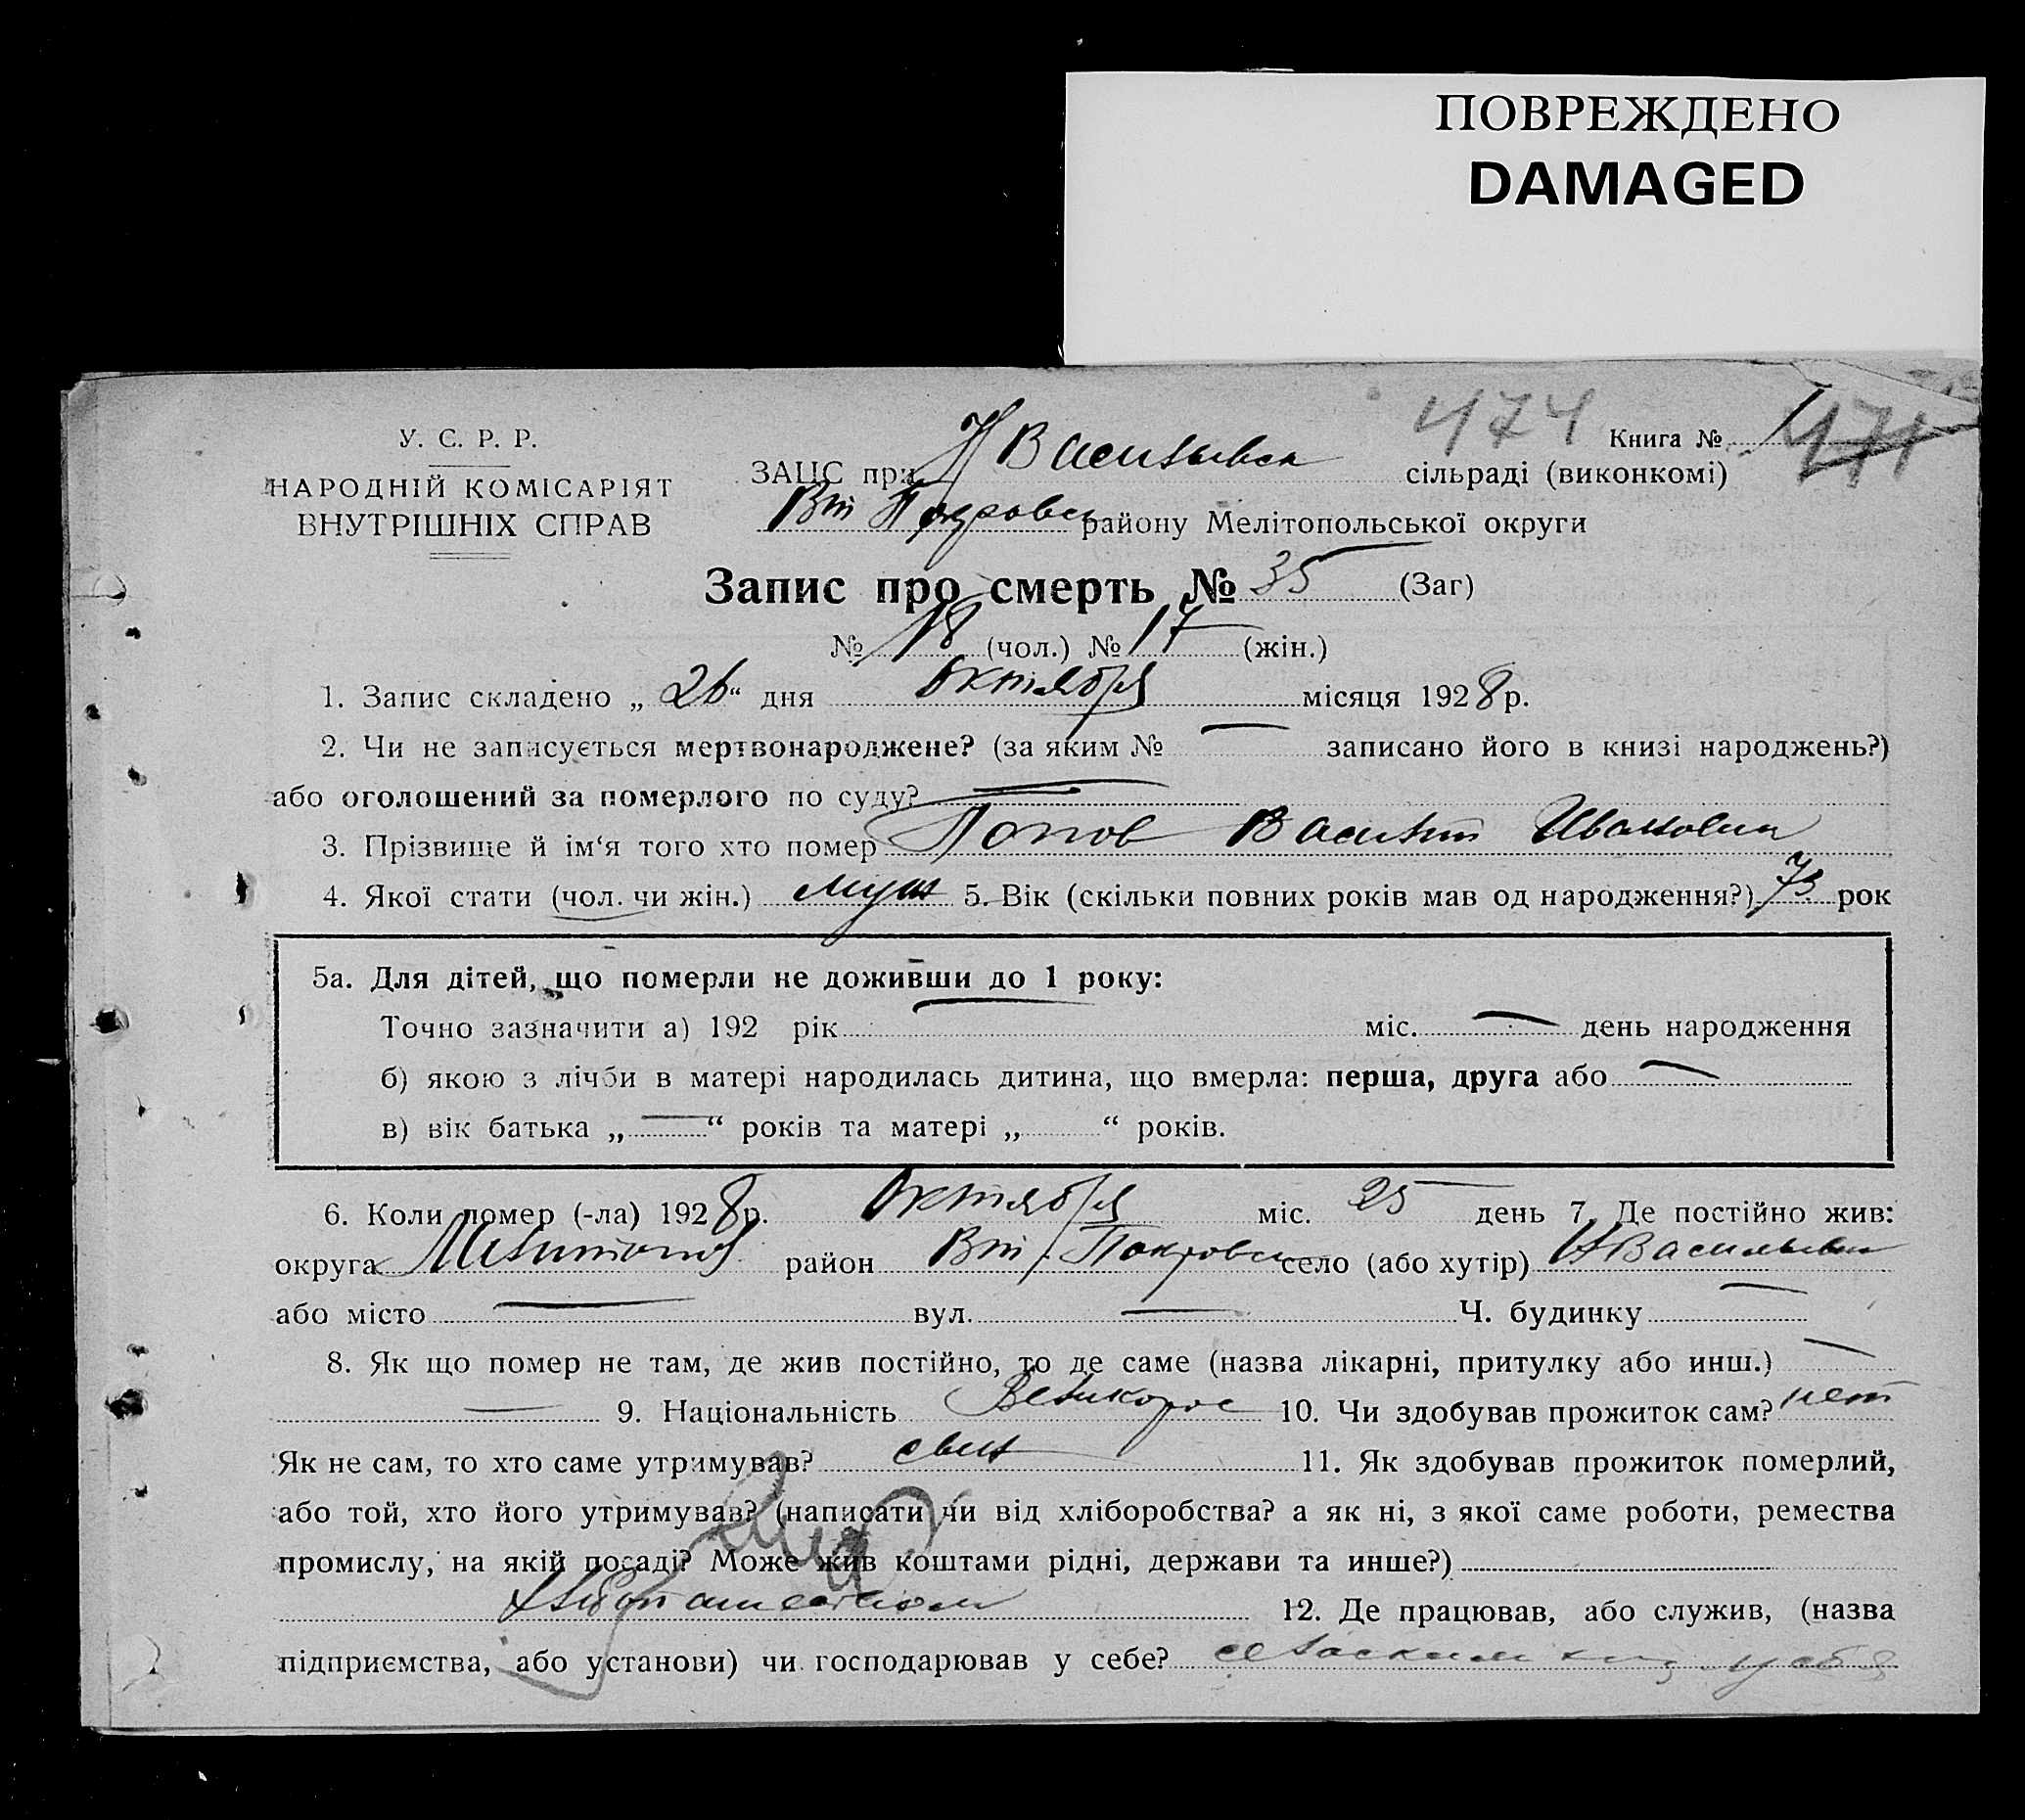 ПОВРЕЖДЕНО
DAMAGED
474
Книга № 1 471
У. С. Р. Р.
НАРОДНІЙ КОМІСАРІЯТ
ВНУТРІШНІХ СПРАВ
ЗАЦС при Н Васильевск сільраді (виконкомі)
Вт Покровск району Мелітопольської округи
Запис про смерть № 35 (Заг)
№ 18 (чол.) № 17 (жін.)
1. Запис складено „ 26 “ дня октября місяця 1928 р.
2. Чи не записується мертвонароджене? (за яким № — записано його в книзі народжень?)
або оголошений за померлого по суду? —
3. Прізвище й ім‘я того хто помер Попов Василий Иванович
4. Якої стати (чол. чи жін.) муж 5. Вік (скільки повних років мав од народження?) 73 рок
5а. Для дітей, що померли не доживши до 1 року:
Точно зазначити а) 192 рік — міс. — день народження
б) якою з лічби в матері народилась дитина, що вмерла: перша, друга або —
в) вік батька „ — “ років та матері „ “ років.
6. Коли помер (-ла) 1928 р. Октября міс. 25 день 7. Де постійно жив:
округа Мелитопол район Вт. Покровск село (або хутір) Н Васильевка
або місто — вул. — Ч. будинку —
8. Як що помер не там, де жив постійно, то де саме (назва лікарні, притулку або инш.) —
— 9. Національність Великорос 10. Чи здобував прожиток сам? нет
Як не сам, то хто саме утримував? сын 11. Як здобував прожиток померлий,
або той, хто його утримував? (написати чи від хліборобства? а як ні, з якої саме роботи, ремества
промислу, на якій посаді? Може жив коштами рідні, держави та инше?)
хлебопашеством 12. Де працював, або служив, (назва
підприємства, або установи) чи господарював у себе? сельским хоз у себя